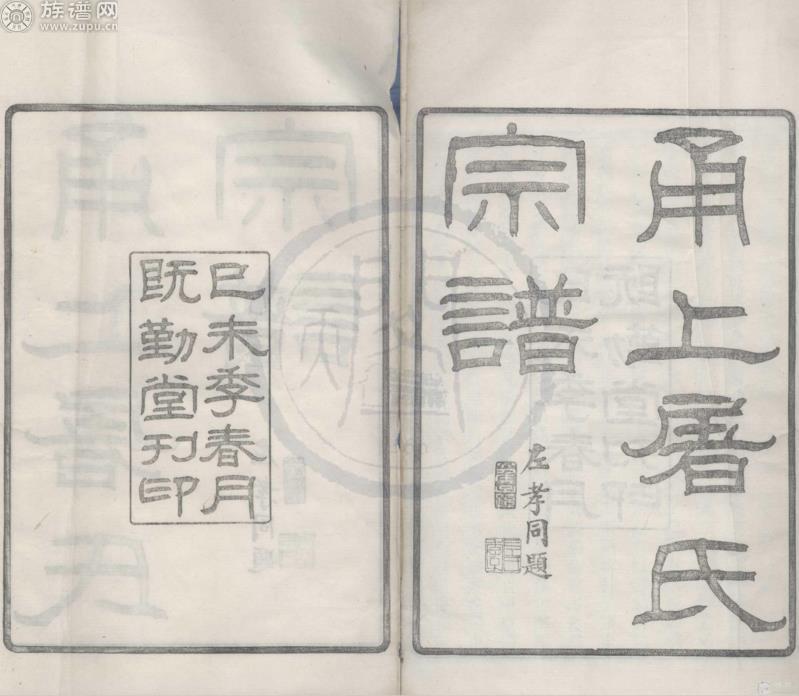 甬上屠氏
宗譜
左孝同題
已未季春月
既勤堂刊印
族谱网
www.zupu.cn